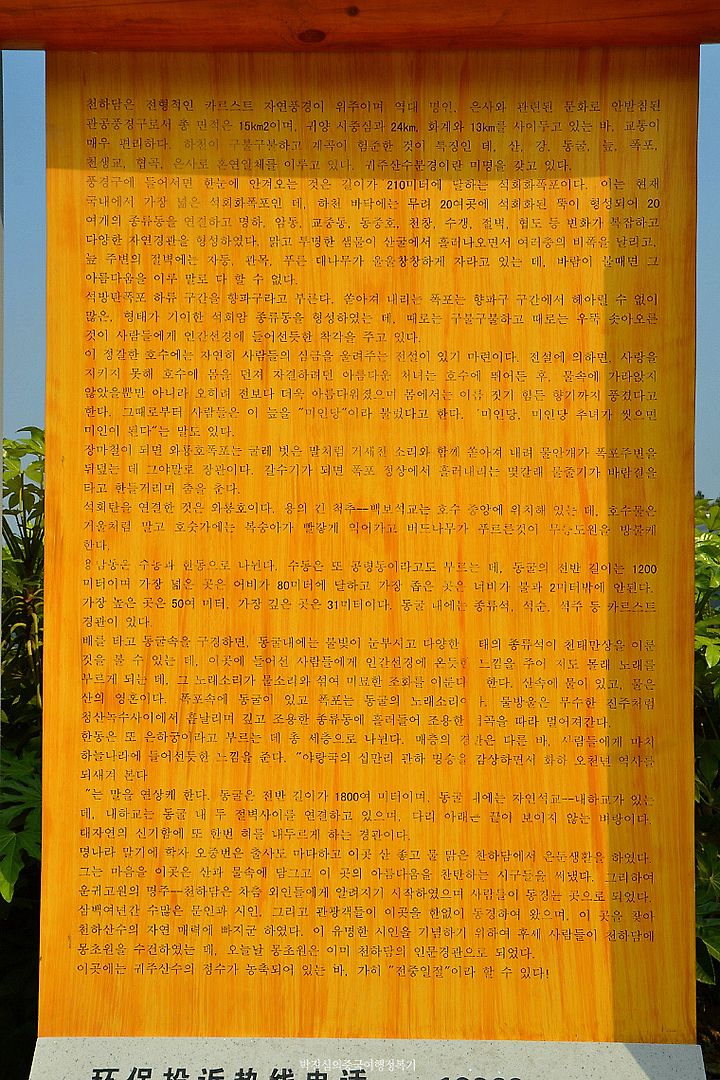 천하담은 전형적인 카르스트 자연풍경이 위주이며 역대 명인, 은사와 관련된 문화로 안받침된
관공풍경구로서 총 면적은 15km2이며, 귀양 시중심과 24km, 화계와 13km를 사이두고 있는 바, 교통이
매우 편리하다. 하천이 구불구불하고 계곡이 험준한 것이 특징인 데, 산, 강, 동굴, 늪, 폭포,
천생교, 협곡, 은사로 혼연일체를 이루고 있다. 귀주산수분경이란 미명을 갖고 있다.
풍경구에 들어서면 한눈에 안겨오는 것은 길이가 210미터에 달하는 석회화폭포이다. 이는 현재
국내에서 가장 넓은 석회화폭포인 데, 하천 바닥에는 무려 20여곳에 석회화된 뚝이 형성되어 20
여개의 종류동을 연결하고 명하, 암동, 교중동, 동중호, 천창, 수갱, 절벽, 협도 등 변화가 복잡하고
다양한 자연경관을 형성하였다. 맑고 투명한 샘물이 산굴에서 흘러나오면서 여러층의 비폭을 달리고,
늪 주변의 절벽에는 자등, 관목, 푸른 대나무가 울울창창하게 자라고 있는 데, 바람이 불때면 그
아름다움을 이루 말로 다 할 수 없다.
석방만폭포 하류 구간을 향파구라고 부른다. 쏟아져 내리는 폭포는 향파구 구간에서 헤아릴 수 없이
많은, 형태가 기이한 석회암 종류동을 형성하였는 데, 때로는 구불구불하고 때로는 우뚝 솟아오른
것이 사람들에게 인간선경에 들어선듯한 착각을 주고 있다.
이 정갈한 호수에는 자연히 사람들의 심금을 울려주는 전설이 있기 마련이다. 전설에 의하면, 사랑을
지키지 못해 호수에 몸을 던져 자결하려던 아름다운 처녀는 호수에 뛰어든 후, 물속에 가라앉지
않았을뿐만 아니라 오히려 전보다 더욱 아름다워졌으며 몸에서는 이름 짓기 힘든 향기까지 풍겼다고
한다. 그때로부터 사람들은 이 늪을 "미인당"이라 불렀다고 한다. "미인당, 미인당 추녀가 씻으면
미인이 된다"는 말도 있다.
장마철이 되면 와룡호폭포는 굴레 벗은 말처럼 거세찬 소리와 함께 쏟아져 내려 물안개가 폭포주변을
뒤덮는 데 그야말로 장관이다. 갈수기가 되면 폭포 정상에서 흘러내리는 몇갈래 물줄기가 바람결을
타고 한들거리며 춤을 춘다.
석회탄을 연결한 것은 와룡호이다. 용의 긴 척추--백보석교는 호수 중앙에 위치해 있는 데, 호수물은
거울처럼 맑고 호숫가에는 복숭아가 빨갛게 익어가고 버드나무가 푸르른것이 무릉도원을 방불케
한다.
용담동은 수동과 한동으로 나뉜다. 수동은 또 공령동이라고도 부르는 데, 동굴의 전반 길이는 1200
미터이며 가장 넓은 곳은 어비가 80미터에 달하고 가장 좁은 곳은 너비가 불과 2미터밖에 안된다.
가장 높은 곳은 50여 미터, 가장 깊은 곳은 31미터이다. 동굴 내에는 종류석, 석순, 석주 등 카르스트
경관이 있다.
배를 타고 동굴속을 구경하면, 동굴내에는 불빛이 눈부시고 다양한 태의 종류석이 천태만상을 이룬
것을 볼 수 있는 데, 이곳에 들어선 사람들에게 인간선경에 온듯한 느낌을 주어 저도 몰래 노래를
부르게 되는 데, 그 노래소리가 물소리와 섞여 미묘한 조화를 이룬다 한다. 산속에 물이 있고, 물은
산의 영혼이다. 폭포속에 동굴이 있고 폭포는 동굴의 노래소리이다. 물방울은 무수한 진주처럼
청산녹수사이에서 흩날리며 깊고 조용한 종류동에 흘러들어 조용한 계곡을 따라 멀어져간다.
한동은 또 은하궁이라고 부르는 데 총 세층으로 나뉜다. 매층의 경관은 다른 바, 사람들에게 마치
하늘나라에 들어선듯한 느낌을 준다. "야랑국의 십만리 관하 명승을 감상하면서 화하 오천년 역사를
되새겨 본다
"는 말을 연상케 한다. 동굴은 전반 길이가 1800여 미터이며, 동굴 내에는 자인석교--내하교가 있는
데, 내하교는 동굴 내 두 절벽사이를 연결하고 있으며, 다리 아래는 끝이 보이지 않는 벼랑이다.
대자연의 신기함에 또 한번 혀를 내두르게 하는 경관이다.
명나라 말기에 학자 오중번은 출사도 마다하고 이곳 산 좋고 물 맑은 찬하담에서 은둔생활을 하였다.
그는 마음을 이곳은 산과 물속에 담그고 이 곳의 아름다움을 찬만하는 시구들을 써냈다. 그리하여
운귀고원의 명주--천하담은 차츰 외인들에게 알려지기 시작하였으며 사람들이 동경는 곳으로 되었다.
삼백여년간 수많은 문인과 시인, 그리고 관광객들이 이곳을 한없이 동경하여 왔으며, 이 곳을 찾아
천하산수의 자연 매력에 빠지군 하였다. 이 유명한 시인을 기념하기 위하여 후세 사람들이 천하담에
몽초원을 수건하였는 데, 오늘날 몽초원은 이미 천하담의 인문경관으로 되었다.
이곳에는 귀주산수의 정수가 농축되어 있는 바, 가히 "전중일절"이라 할 수 있다!
박진실의중국여행정복기
环保投诉热线电话